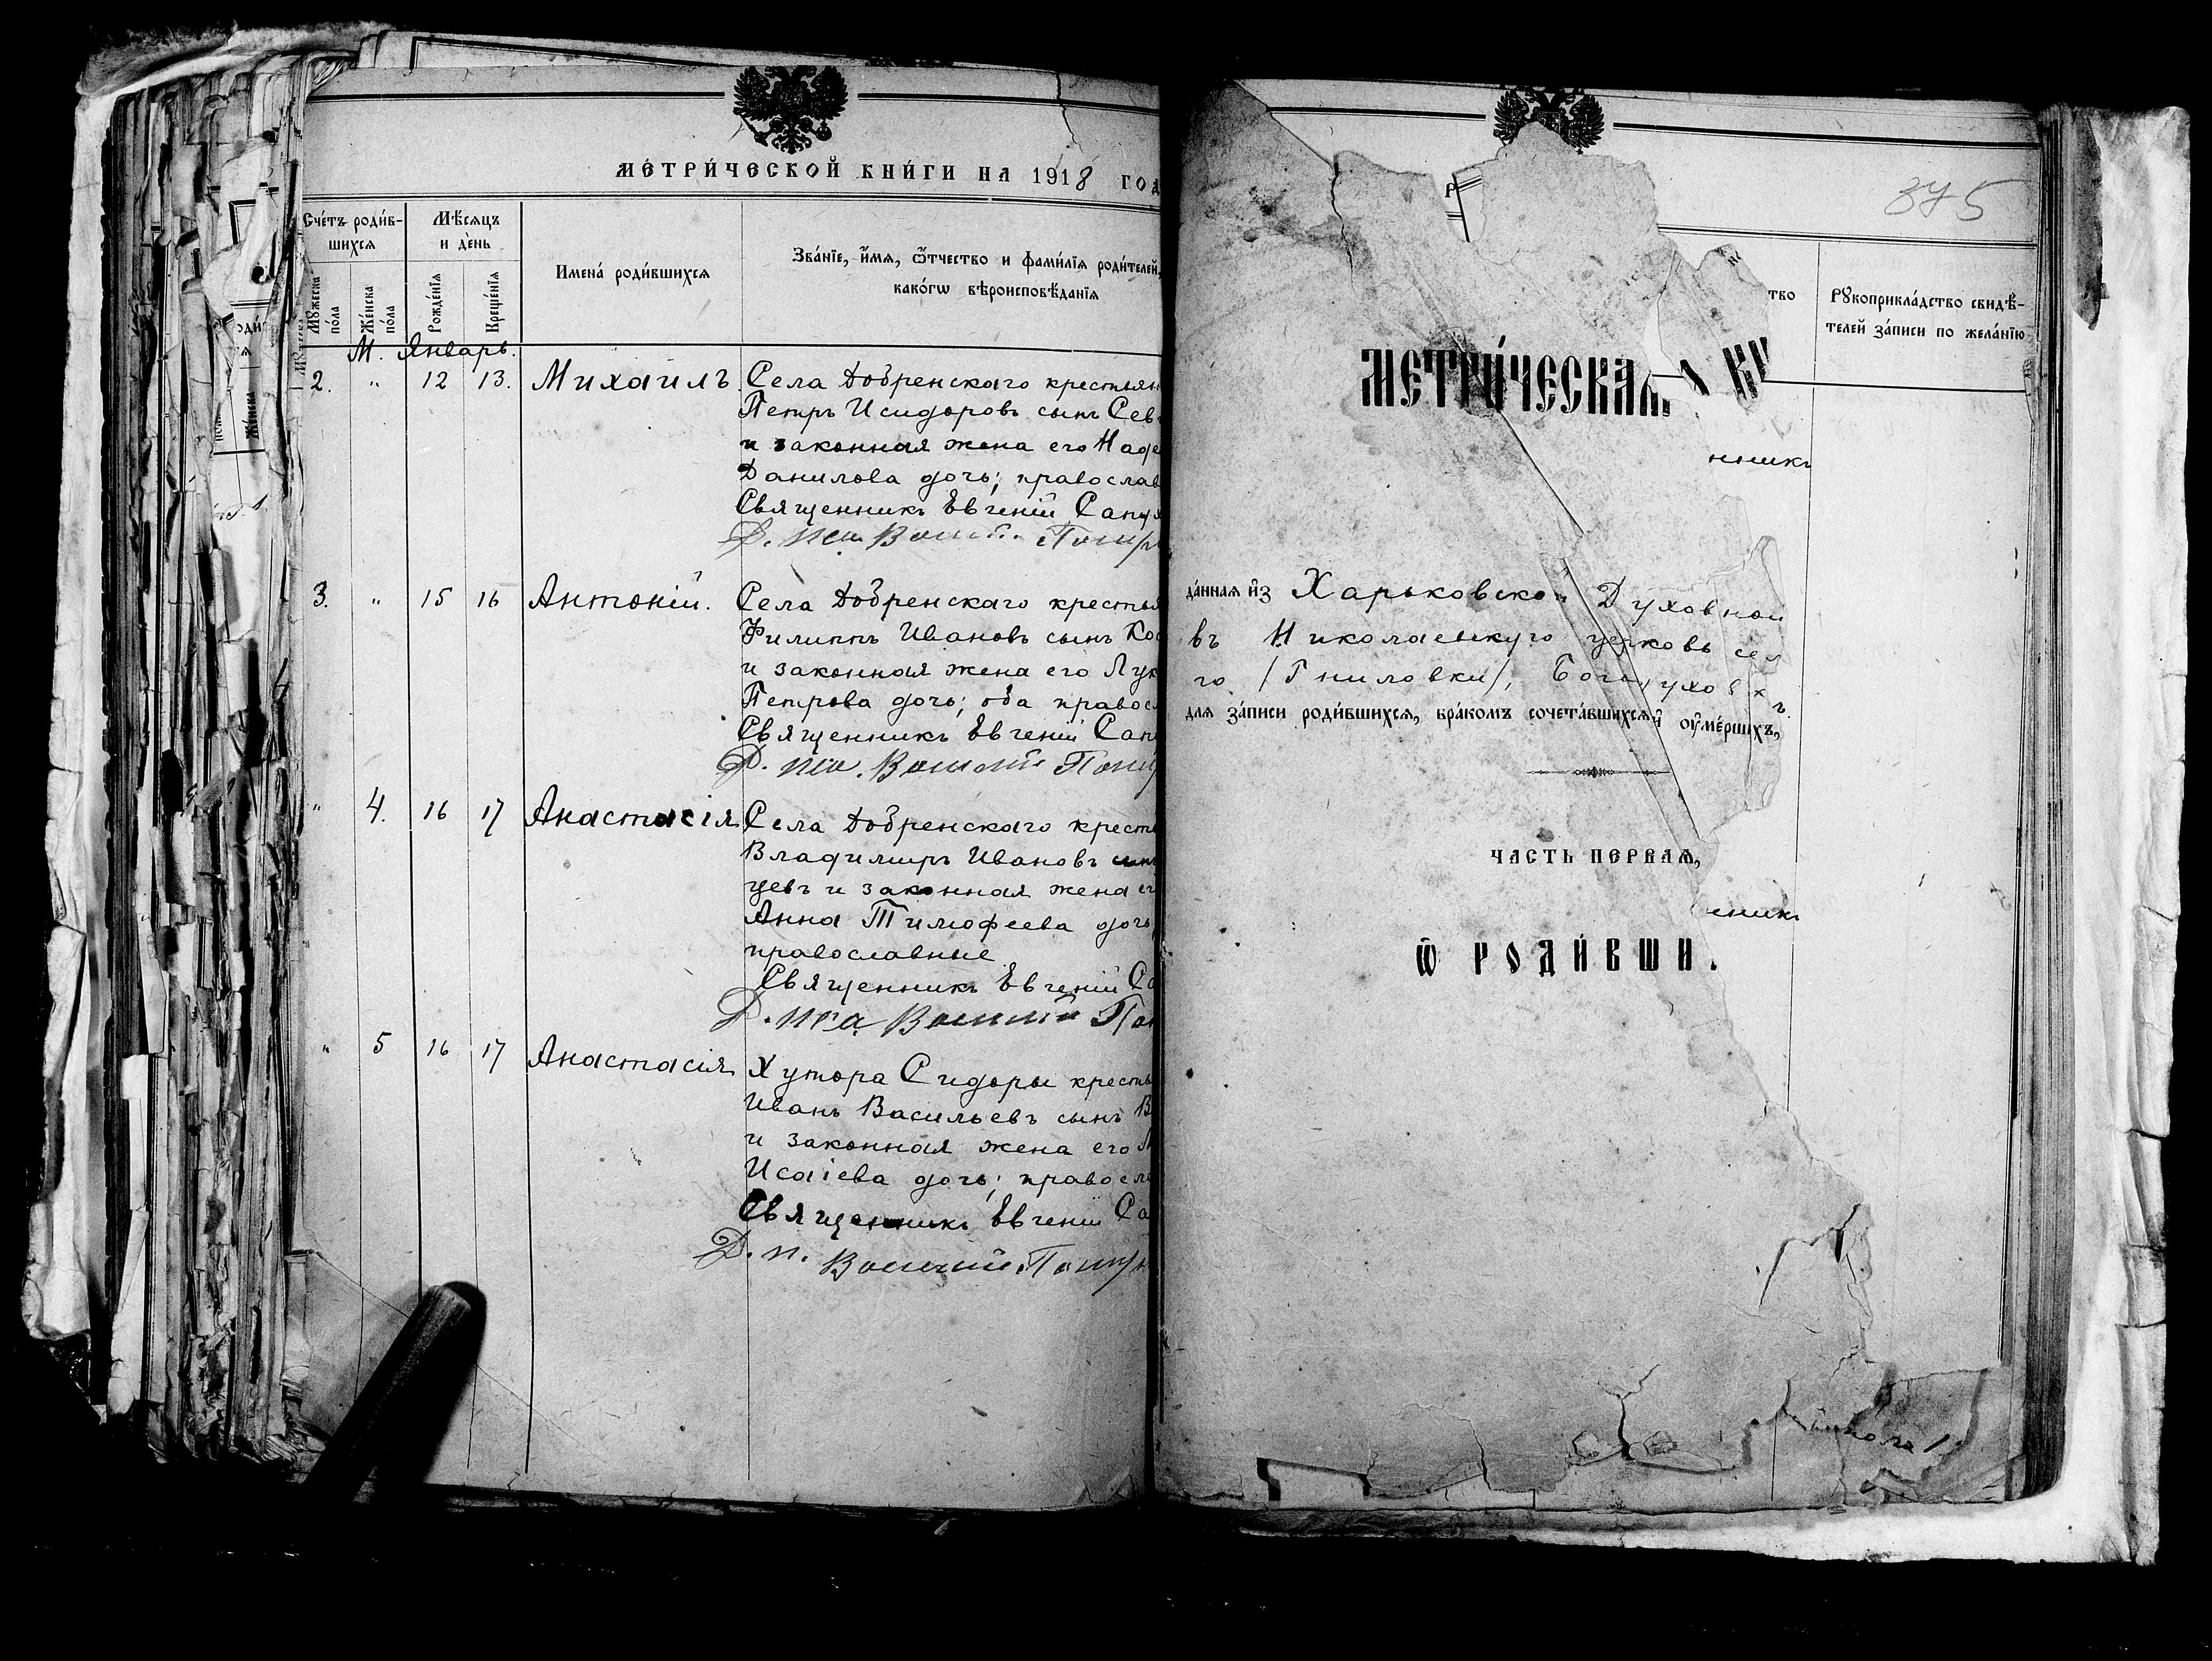 МЕТРИ́ЧЕСКОЙ КНИ́ГИ НА 1918 ГОД
Сче́тъ роди́в-
шихся
Мѣ́сяцъ
и де́нь
Имена́ роди́вшихся
Зва́нїе, и́мя, ѻ́тчество и фами́лїя роди́телей,
како́гѡ вѣроисповѣ́данїя
Мꙋжеска
по́ла
Же́нска
по́ла
Рожде́нїя
Креще́нїя
М. Январь.
2. " 12 13. Михаилъ. Села Добренскаго крестьян
Петръ Исидоровъ сынъ Сев
и законная жена его Наде
Данилова дочь; православ
Священникъ Евгеній Сапух
Д. Пса. Василій
3. " 15 16 Антоній. Села Добренскаго крестья
Филиппъ Ивановъ сынъ Кос
и законная жена его Лук
Петрова дочь; оба правосл
Священникъ Евгеній Сап
Д. Пса. Василій
" 4. 16 17 Анастасія Села Добренскаго кресть
Владимиръ Ивановъ сынъ
цевъ и законная жена ег
Анна Тимофеева дочь
православные
Священникъ Евгеній Са
Д. Пса. Василій
" 5 16 17 Анастасія Хутора Сидоры кресть
Иванъ Васильевъ сынъ В
и законная жена его
Исаіева дочь; правосла
Священникъ Евгеній Са
Д. п. Василій
375
тво
Рꙋкоприкла́дство свидѣ́-
телей за́писи по жела́нїю
МЕТРИ́ЧЕСКАЯ КН
нникъ
да́нная и҆з Харьковской Духовной
въ Николаевскую церковь сел
го /Гниловки/, Богодуховск
для за́писи роди́вшихся, бра́комъ сочета́вшихся и҆ ᲂу҆ме́ршихъ,
ЧАСТЬ ПЕРВАЯ,
енникъ
Ѽ РОДИ́ВШИ